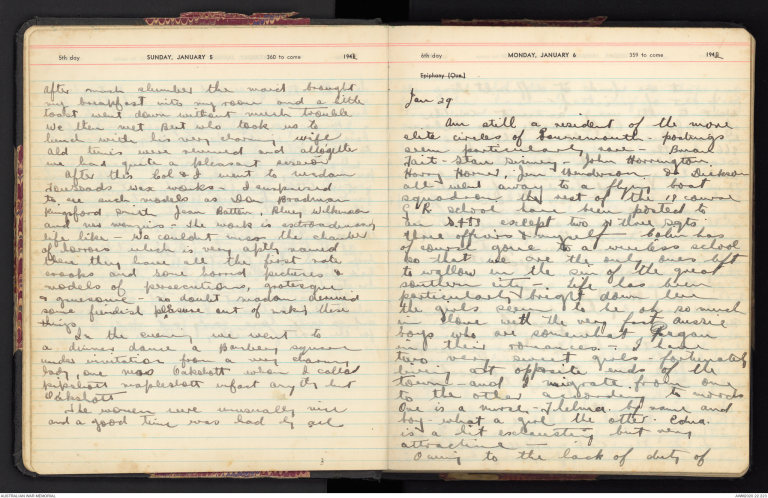 5th day SUNDAY, JANUARY 5 360 to come 1941
after much slumber the maid brought
my breakfast into my room and a little
toast went down without much trouble
We then met Bert who took us to
lunch with his very charming wife
Old times were renewed and altogether
we had quite a pleasant session
After this Col & I went to Madam
Tussauds wax works - I surprised
to see such models as Don Bradman
Kingsford Smith Jean Batten, Bluey Wilkinson
and Mr Menzies - The work is extraordinary
life like - We couldn't miss the chamber
of horrors which is very aptly named
Here they have all the first rate
crooks and some horrid pictures &
models of persecutions, grotesque
& gruesome - no doubt madam derived
some fiendish pleasure out of making these
things
In the evening we went to
a dinner dance a Barbery square
under invitation from a very charming
lady, one Miss Oakshott whom I called
pipshott mapleshott infact anything but
Oakshott
The women were unusually nice
and a good time was had by all
6th day MONDAY, JANUARY 6 359 to come 1941
Epiphany (Qua.)
Jan 29
Am still a resident of the more
elite circles of Bournemouth - postings
seem particularly rare - Brian
Tait - Stan - John Harrington
Harry Horner, Jim Henderson, Do Dickson
all went away to a flying boat
squadron the rest of the 19 course
School has been posted to
except two or three sgts
three officers & myself - Colin has
of course gone to a wireless school
so that we are the only ones left
to wallow in the sun of the great
southern city - Life has been
particularly bright down here
the girls seem to be oh so much
in love with the very fast aussie
boys who are somewhat Pagan
in their romances - I have
two very sweet girls - fortunately
living at opposite ends of the
town - and I migrate from one
to the other according to moods
One is a nurse - Thelma by name and
boy what a girl the other Edna
is a bit exhausting but very
attractive -
Owing to the lack of duty of
AUSTRALIAN WAR MEMORIAL